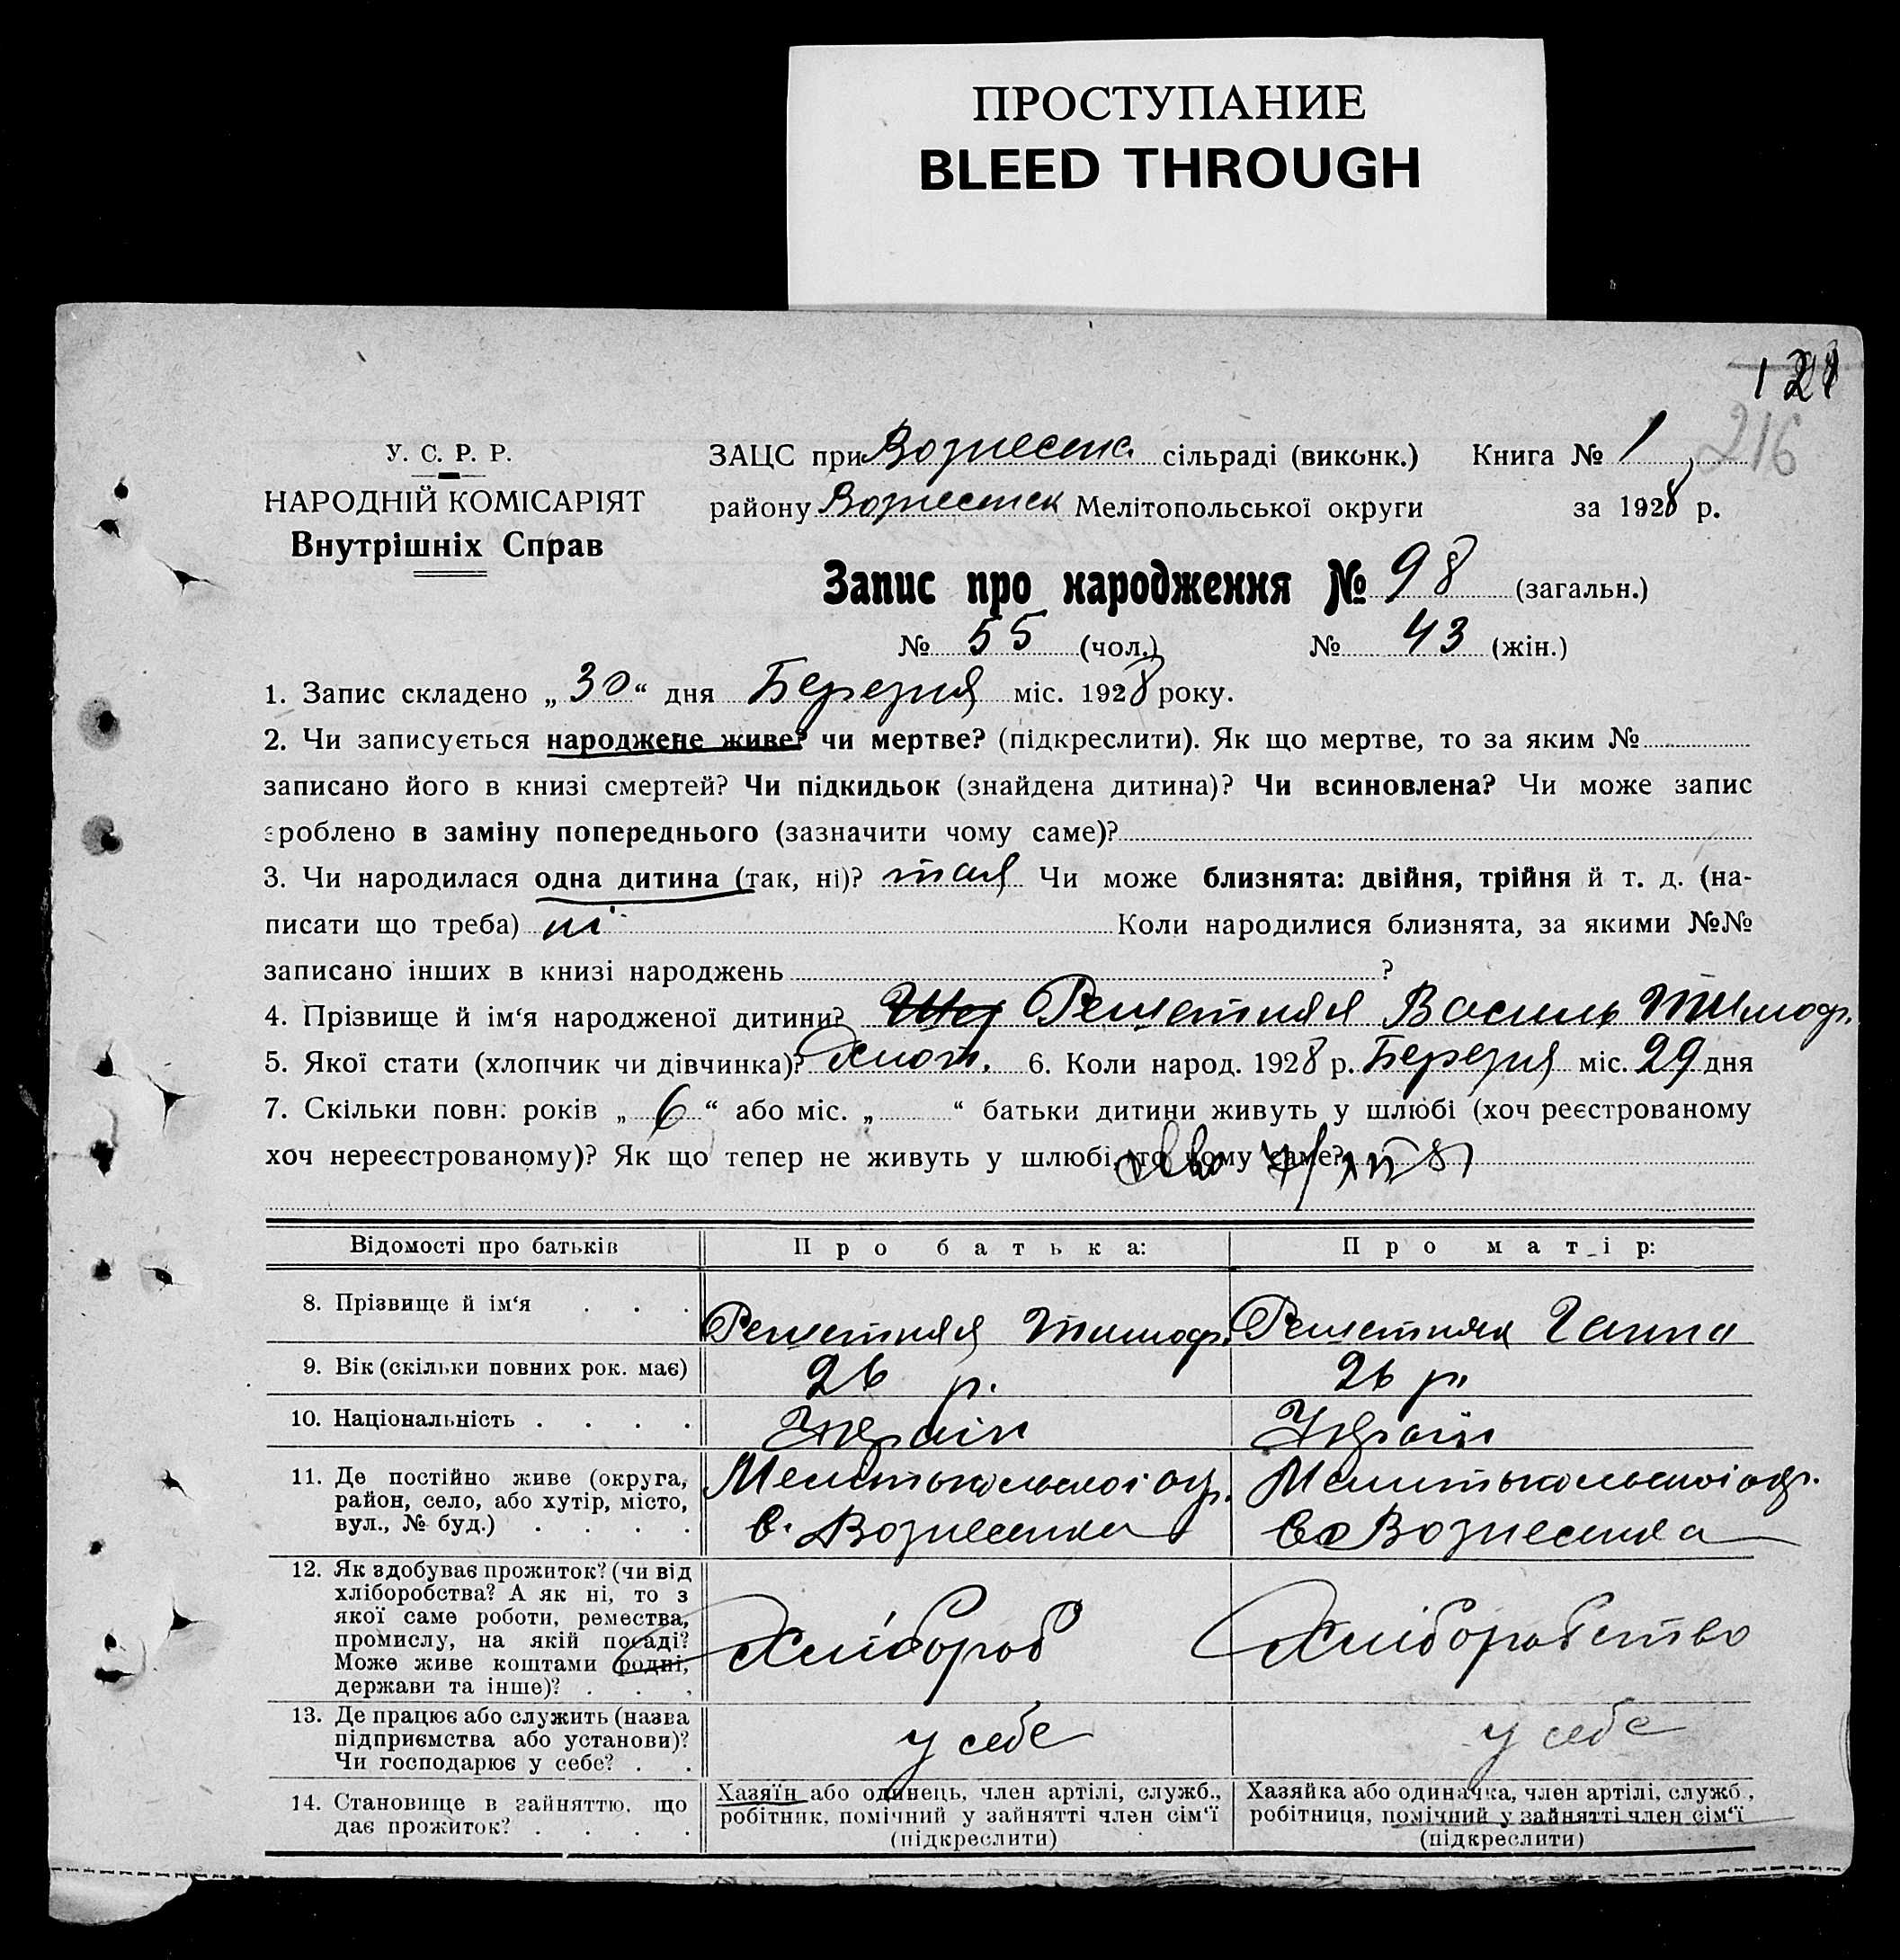 ПРОСТУПАНИЕ
BLEED THROUGH
121
216
У. С. Р. Р.
НАРОДНІЙ КОМІСАРІЯТ
Внутрішніх Справ
ЗАЦС при Вознесенс. сільраді (виконк.) Книга № 1
району Вознесенск Мелітопольської округи за 1928 р.
Запис про народження № 98 (загальн.)
№ 55 (чол.) № 43 (жін.)
1. Запис складено „ 30 “ дня Березня міс. 1928 року.
2. Чи записується народжене живе? чи мертве? (підкреслити). Як що мертве, то за яким №
записано його в книзі смертей? Чи підкидьок (знайдена дитина)? Чи всиновлена? Чи може запис
зроблено в заміну попереднього (зазначити чому саме)?
3. Чи народилася одна дитина (так, ні)? так Чи може близнята: двійня, трійня й т. д. (на-
писати що треба) ні Коли народилися близнята, за якими №№
записано інших в книзі народжень ?
4. Прізвище й ім‘я народженої дитини? Решетняк Василь Тимоф.
5. Якої стати (хлопчик чи дівчинка)? хлоп. 6. Коли народ. 1928 р. Березня міс. 29 дня
7. Скільки повн. років „ 6 “ або міс. „ “ батьки дитини живуть у шлюбі (хоч реєстрованому
хоч нереєстрованому)? Як що тепер не живуть у шлюбі, то чому саме?
Відомості про батьків Про батька: Про матір:
8. Прізвище й ім‘я . . . Решетняк Тимоф. Решетняк Ганна
9. Вік (скільки повних рок. має) 26 р. 26 р.
10. Національність . . . . Україн Україн
11. Де постійно живе (округа,
район, село, або хутір, місто,
вул., № буд.) . . . .
Мелітопольської окр.
с. Вознесенка
Мелітопольської окр.
с. Вознесенка
12. Як здобуває прожиток? (чи від
хліборобства? А як ні, то з
якої саме роботи, ремества,
промислу, на якій посаді?
Може живе коштами родні,
держави та інше)? . . .
Хлібороб
Хліборобство
13. Де працює або служить (назва
підприємства або установи)?
Чи господарює у себе? . .
у себе
у себе
14. Становище в зайняттю, що
дає прожиток? . . . .
Хазяїн або одинець, член артілі, служб.,
робітник, помічний у зайнятті член сім‘ї
(підкреслити)
Хазяйка або одиначка, член артілі, служб.,
робітниця, помічний у зайнятті член сім‘ї
(підкреслити)